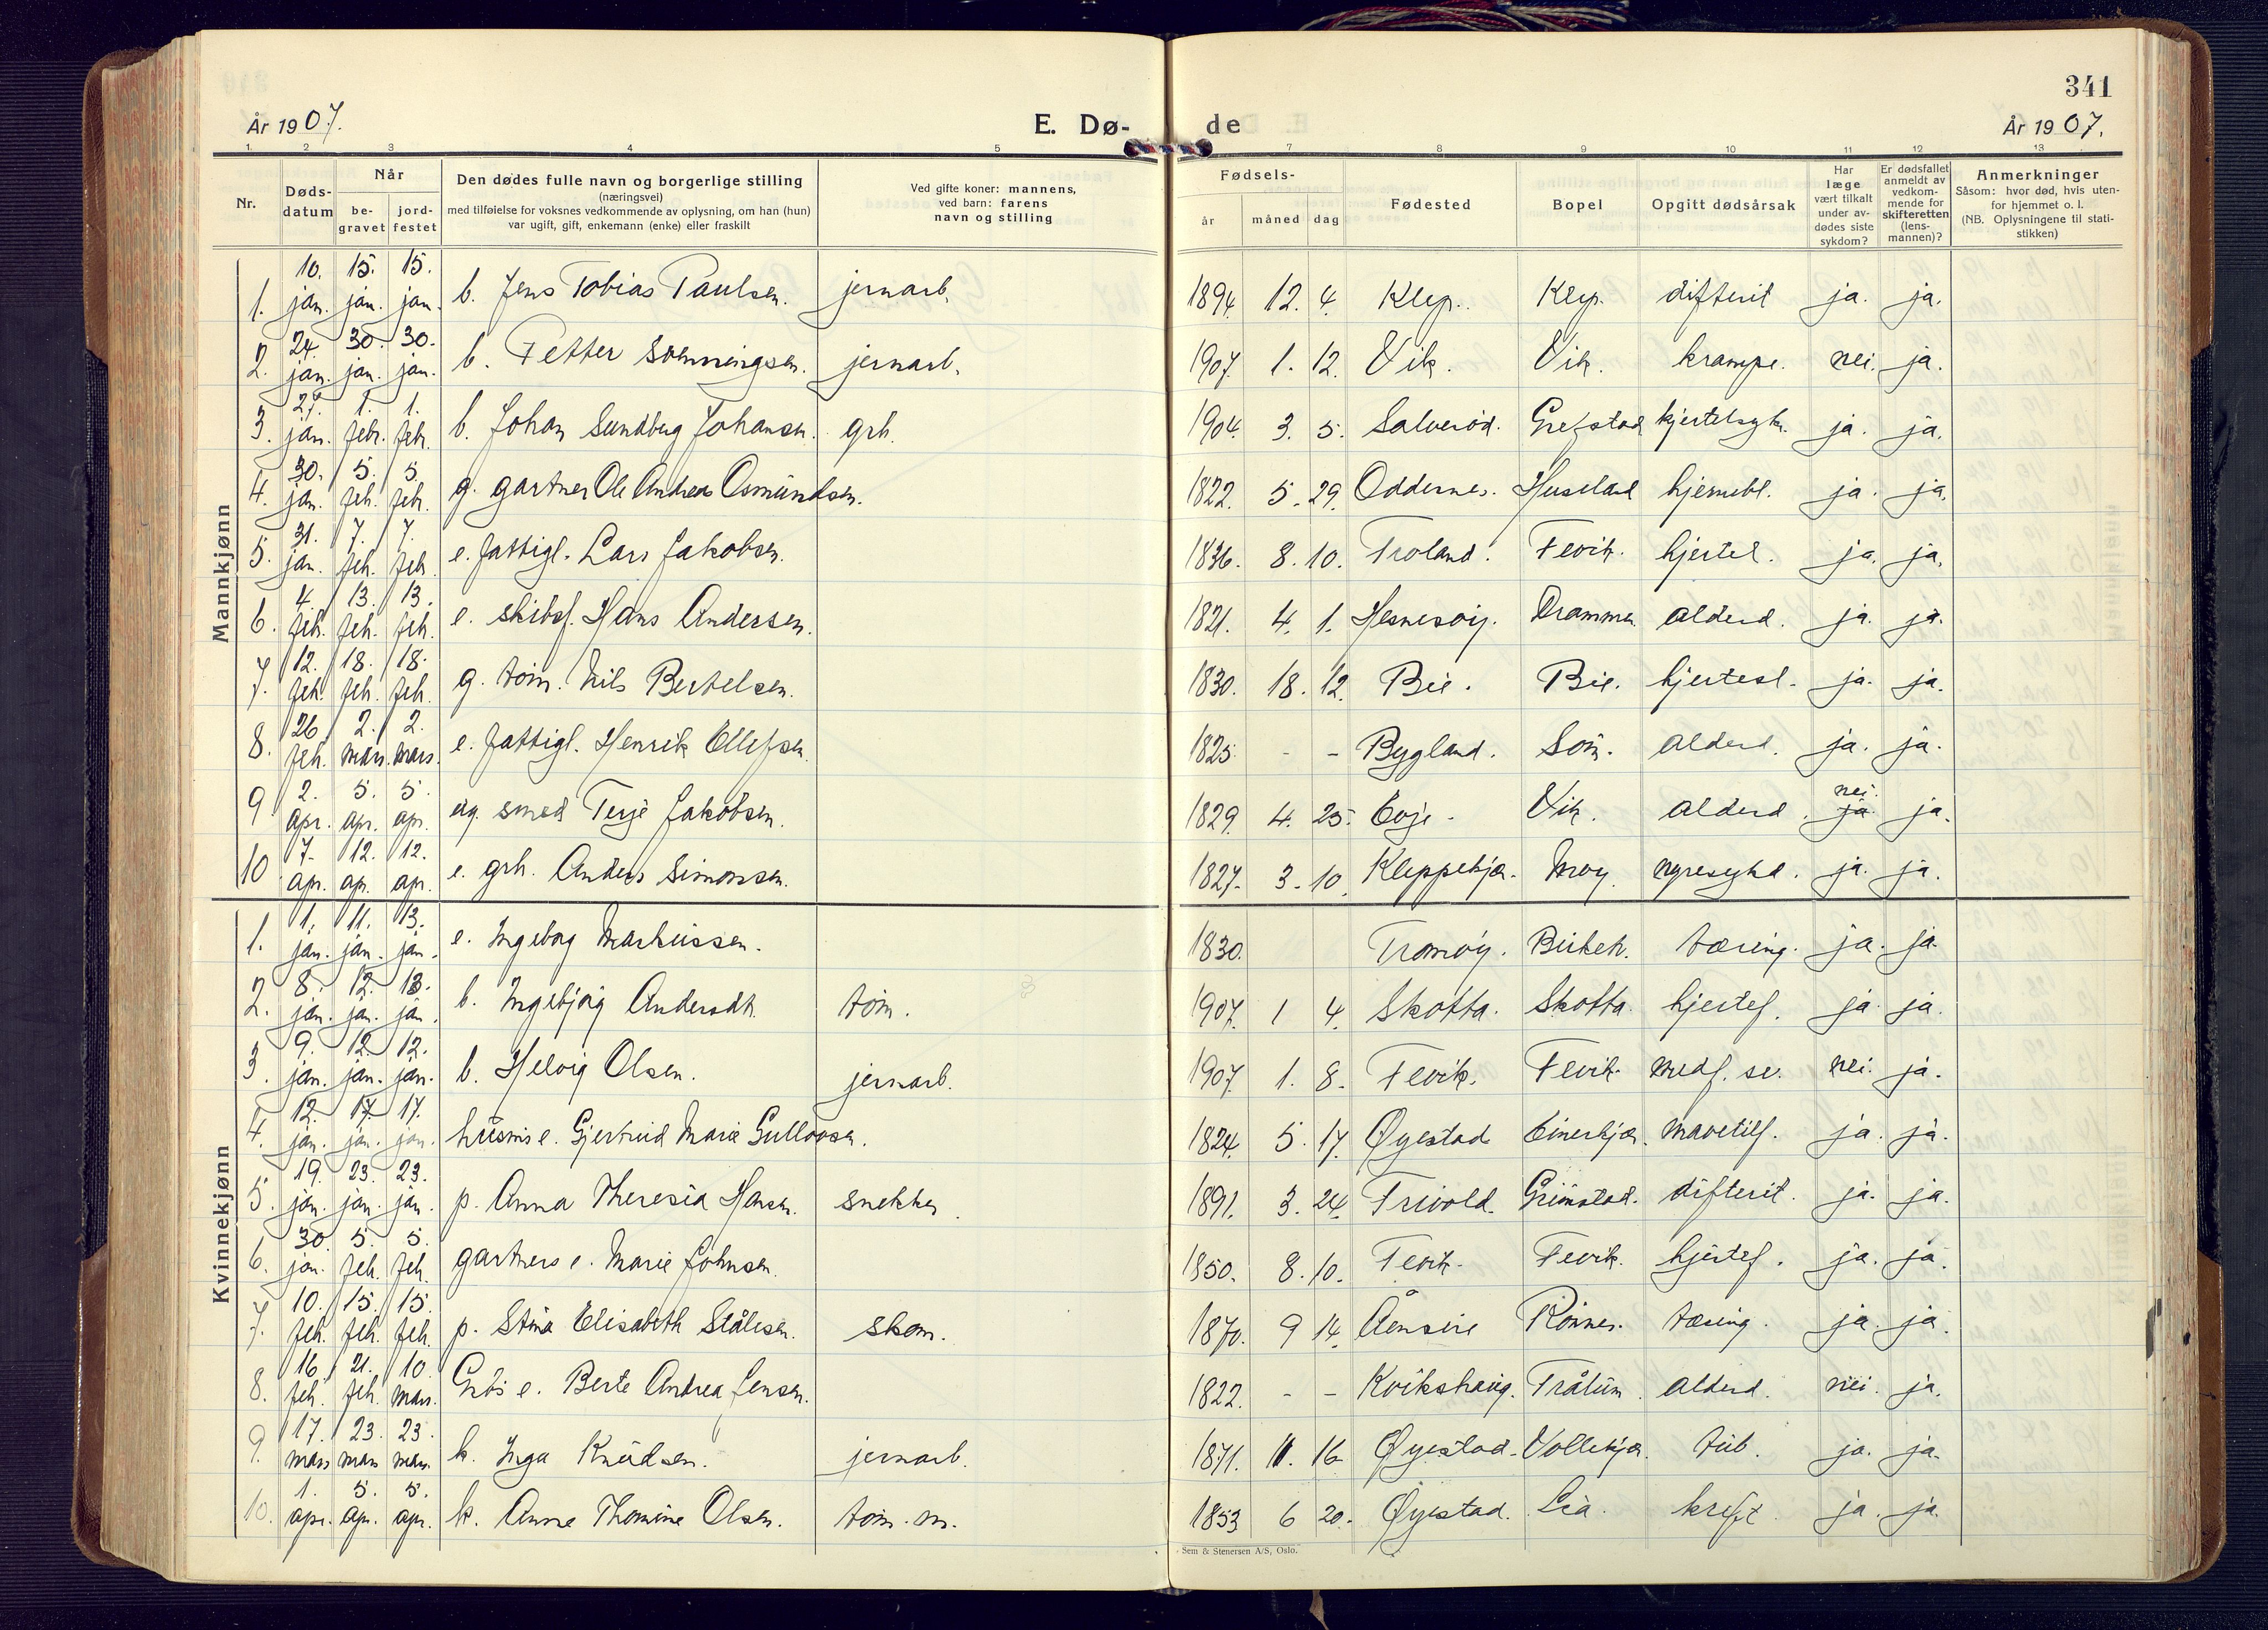 341
År 1907.
E. Dø-
de
År 1907.
1. 2 3 4 5 7 8 9 10 11 12 13
Nr.
Døds-
datum
Når
be-
gravet
jord-
festet
Den dødes fulle navn og borgerlige stilling
(næringsvei)
med tilføielse for voksnes vedkommende av oplysning, om han (hun)
var ugift, gift, enkemann (enke) eller fraskilt
Ved gifte koner: mannens,
ved barn: farens
navn og stilling
Fødsels-
år
måned
dag
Fødested
Bopel
Opgitt dødsårsak
Har
læge
vært tilkalt
under av-
dødes siste
sykdom?
Er dødsfallet
anmeldt av
vedkom-
mende for
skifteretten
(lens-
mannen)?
Anmerkninger
Såsom: hvor død, hvis uten-
for hjemmet o. l.
(NB. Oplysningene til stati-
stikken)
Mannkjønn
1. 10. jan. 15. jan. 15. jan. b. Jens Tobias Paulsen. jernarb. 1894. 12. 4. Klep. Klep. difterit ja. ja.
2. 24. jan. 30. jan. 30. jan. b. Petter Svenningsen. jernarb. 1907. 1. 12. Vik. Vik. krampe. nei. ja.
3. 27. jan. 1. febr. 1. febr. b. Johan Sundberg Johansen. grb. 1904. 3. 5. Salverød. Grefstad kjertelsyk. ja. ja.
4. 30. jan. 5. feb. 5. febr. g. gartner Ole Andreas Osmundsen. 1822. 5. 29. Oddernes. Huseland hjernebl. ja. ja.
5. 31. jan. 7. feb. 7. feb. e. fattigl. Lars Jakobsen. 1836. 8. 10. Froland. Fevik. hjertel. ja. ja.
6. 4. feb. 13. feb. 13. feb. e. skibsf. Hans Andersen. 1821. 4. 1. Hesnesøy. Drammen alderd. ja. ja.
7. 12. feb. 18. feb. 18. feb. g. tøm. Nils Bertelsen. 1830. 18. 12. Bie. Bie. hjertesl. ja. ja.
8. 26. feb. 2. mars. 2. mars. e. fattigl. Henrik Ellefsen. 1825. - - Bygland. Søm. alderd. ja. ja.
9 2. apr. 5. apr. 5. apr. ug. smed Terje Jakobsen. 1829. 4. 25. Evje. Vik. alderd. nei. ja. ja.
10 7. apr. 12. apr. 12. apr. e. grb. Anders Simonsen. 1827. 3. 10. Kleppekjær. Moy. nyresykd. ja. ja.
Kvinnekjønn
1. 1. jan. 11. jan. 13. jan. e. Ingeborg Markussen. 1830. Tromøy. Birkeh. tæring. ja. ja.
2. 8. jan. 12. jan. 13. jan. b. Ingebjørg Andersdtr. tøm. 1907. 1 4. Skotta. Skotta. hjertef. ja. ja.
3. 9. jan. 12. jan. 12. jan. b. Helvig Olsen. jernarb. 1907. 1. 8. Fevik. Fevik. medf. sv. nei. ja.
4. 12. jan. 17. jan. 17. jan. husms e. Gjertrud Marie Gullovsen. 1824. 5. 17. Øyestad Einerkjær. mavetilf. ja. ja.
5. 19. jan. 23. jan. 23. jan. p. Anna Theresia Hansen. snekker. 1891. 3. 24. Frivold. Grimstad. difterit. ja. ja.
6. 30 jan. 5. feb. 5. feb. gartners e. Marie Johnsen. 1850. 8. 10. Fevik. Fevik. hjertef. ja. ja.
7. 10. feb. 15. feb. 15. feb. p. Stina Elisabeth Ståhlesen. skom. 1870. 9 14. Åensire Rønnes. tæring. ja. ja.
8. 16. feb. 21. feb. 10 mars. Grbs e. Berte Andrea Jensen. 1822. - - Kvikshaug. Trålum. alderd. nei. ja.
9. 17. mars 23. mars 23. mars. k. Inga Knudsen. jernarb. 1871. 11. 16 Øyestad. Vollekjær. tub. ja. ja.
10. 1. apr. 5. apr. 5. apr. k. Anne Thomine Olsen. tøm. m. 1853 6 20. Øyestad. Lia. kreft ja. ja.
Sem & Stenersen A/S, Oslo.